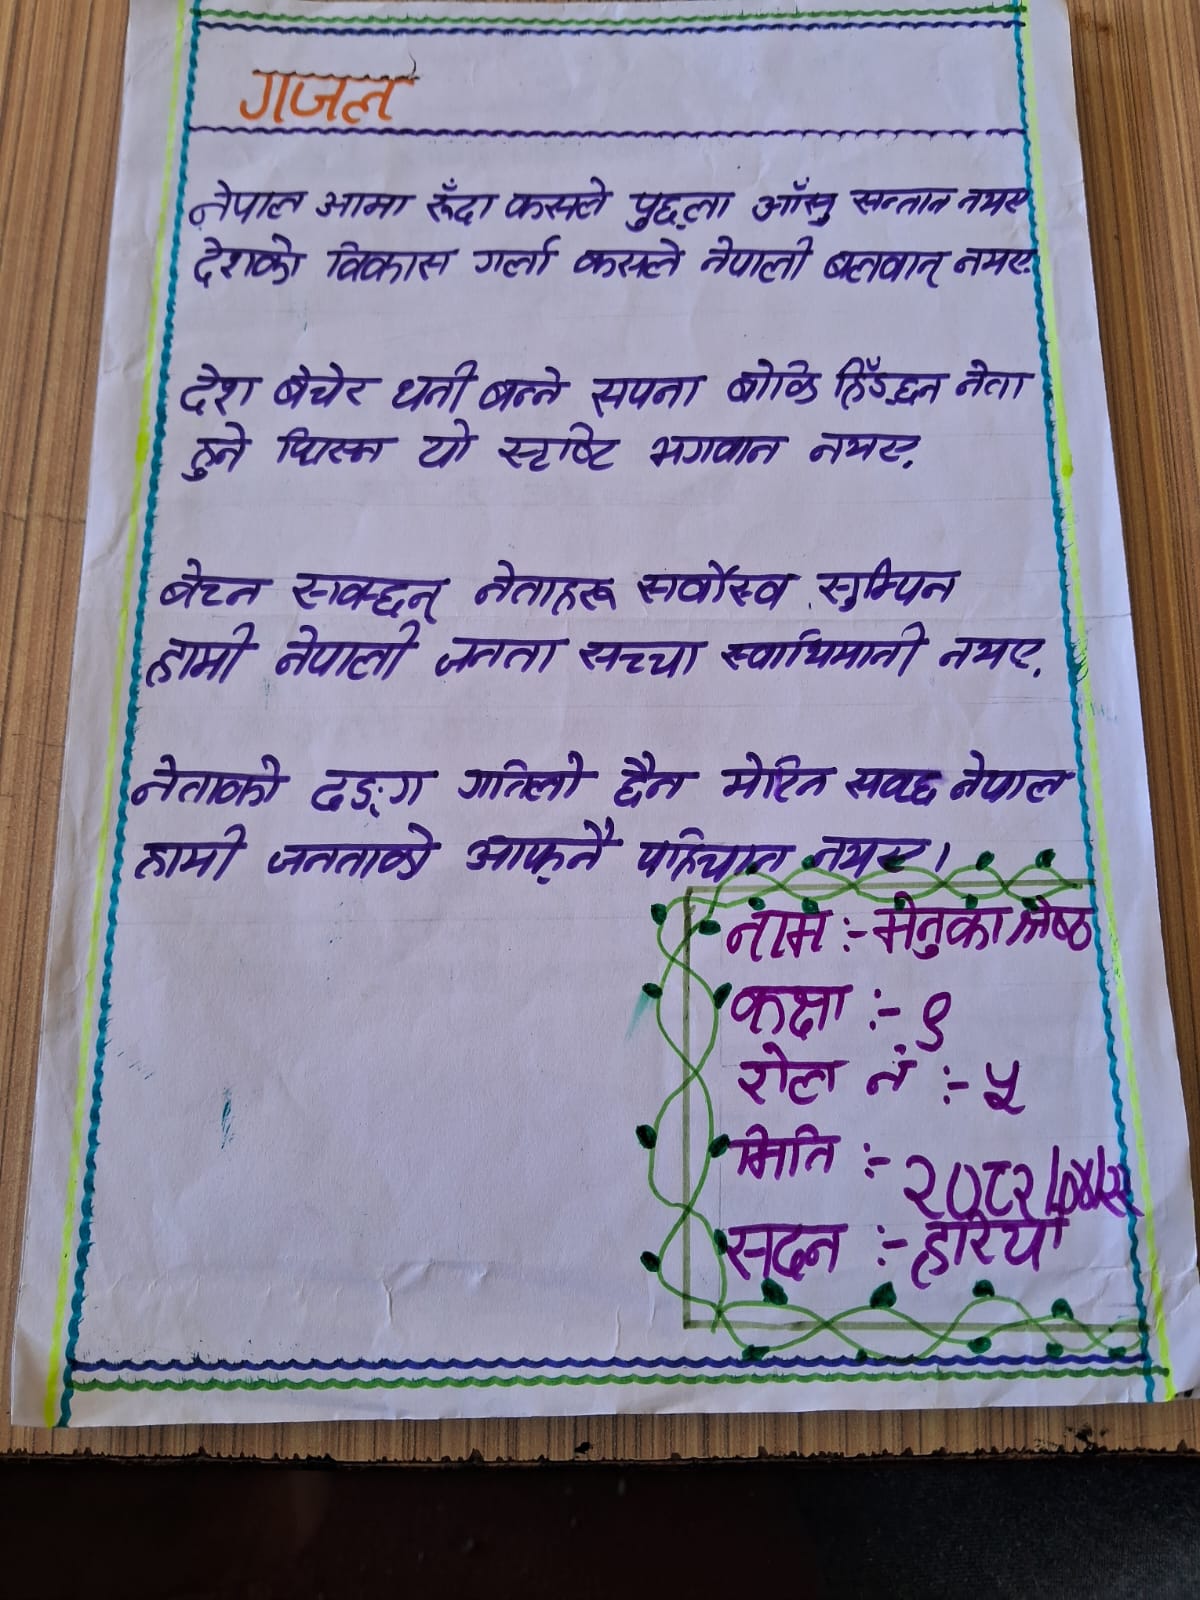 गजल
नेपाल आमा रूँदा कसले पुछ्ला आँसु सन्तान नभए
देशको विकास गर्ला कसले नेपाली बलवान् नभए.
देश बेचेर धनी बन्ने सपना बोकि हिँड्छन नेता
हुने थिएन यो सृष्टि भगवान नभए.
बेच्न सक्छन् नेताहरू सर्वोस्व सुम्पिन
हामी नेपाली जनता सच्चा स्वाभिमानी नभए.
नेताको ढङ्ग गतिलो छैन मेरिन सक्छ नेपाल
हामी जनताको आफ्नै पहिचान नभए।
नाम :- मेनुका श्रेष्ठ
कक्षा :- ९
रोल नं :- ५
मिति :-
२०८२/०४/२९
सदन :- हरियो